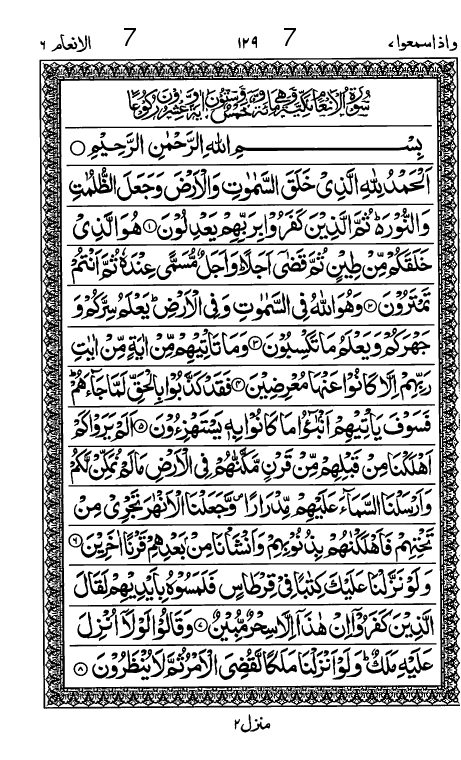 واذاسمعوا، 7 ۱۲۹ 7 الانعام ۶
سُوْرَةُ الْاَنْعَامِ مَكِّيَّةٌ وَّهِیَ مِائَةٌ وَّخَمْسٌ وَّسِتُّوْنَ اٰيَةً وَّعِشْرُوْنَ رُكُوْعًا
بِسْمِ اللّٰهِ الرَّحْمٰنِ الرَّحِيْمِ ○
اَلْحَمْدُ لِلّٰهِ الَّذِیْ خَلَقَ السَّمٰوٰتِ وَالْاَرْضَ وَجَعَلَ الظُّلُمٰتِ
وَالنُّوْرَ ؕ ثُمَّ الَّذِيْنَ كَفَرُوْا بِرَبِّهِمْ يَعْدِلُوْنَ ۱ هُوَ الَّذِیْ
خَلَقَكُمْ مِّنْ طِيْنٍ ثُمَّ قَضٰۤی اَجَلًا ؕ وَاَجَلٌ مُّسَمًّی عِنْدَهٗ ثُمَّ اَنْتُمْ
تَمْتَرُوْنَ ۲ وَهُوَ اللّٰهُ فِی السَّمٰوٰتِ وَفِی الْاَرْضِ ؕ يَعْلَمُ سِرَّكُمْ وَ
جَهْرَكُمْ وَيَعْلَمُ مَا تَكْسِبُوْنَ ۳ وَمَا تَاْتِيْهِمْ مِّنْ اٰيَةٍ مِّنْ اٰيٰتِ
رَبِّهِمْ اِلَّا كَانُوْا عَنْهَا مُعْرِضِيْنَ ۴ فَقَدْ كَذَّبُوْا بِالْحَقِّ لَمَّا جَآءَهُمْ ؕ
فَسَوْفَ يَاْتِيْهِمْ اَنْۢبٰٓؤُا مَا كَانُوْا بِهٖ يَسْتَهْزِءُوْنَ ۵ اَلَمْ يَرَوْا كَمْ
اَهْلَكْنَا مِنْ قَبْلِهِمْ مِّنْ قَرْنٍ مَّكَّنّٰهُمْ فِی الْاَرْضِ مَا لَمْ نُمَكِّنْ لَّكُمْ
وَاَرْسَلْنَا السَّمَآءَ عَلَيْهِمْ مِّدْرَارًا ۪ وَّجَعَلْنَا الْاَنْهٰرَ تَجْرِیْ مِنْ
تَحْتِهِمْ فَاَهْلَكْنٰهُمْ بِذُنُوْبِهِمْ وَاَنْشَاْنَا مِنْۢ بَعْدِهِمْ قَرْنًا اٰخَرِيْنَ ۶
وَلَوْ نَزَّلْنَا عَلَيْكَ كِتٰبًا فِیْ قِرْطَاسٍ فَلَمَسُوْهُ بِاَيْدِيْهِمْ لَقَالَ
الَّذِيْنَ كَفَرُوْۤا اِنْ هٰذَاۤ اِلَّا سِحْرٌ مُّبِيْنٌ ۷ وَقَالُوْا لَوْلَاۤ اُنْزِلَ
عَلَيْهِ مَلَكٌ ؕ وَلَوْ اَنْزَلْنَا مَلَكًا لَّقُضِیَ الْاَمْرُ ثُمَّ لَا يُنْظَرُوْنَ ۸
منزل ۲